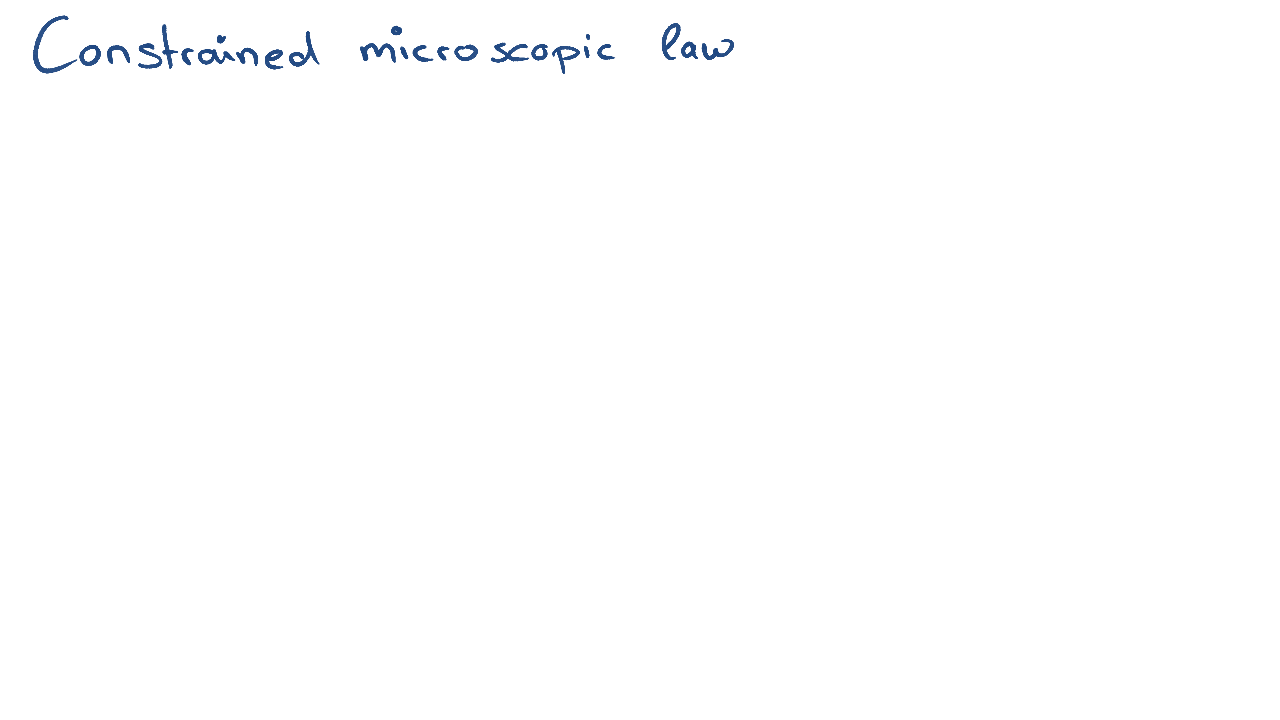 Constrained microscopic law